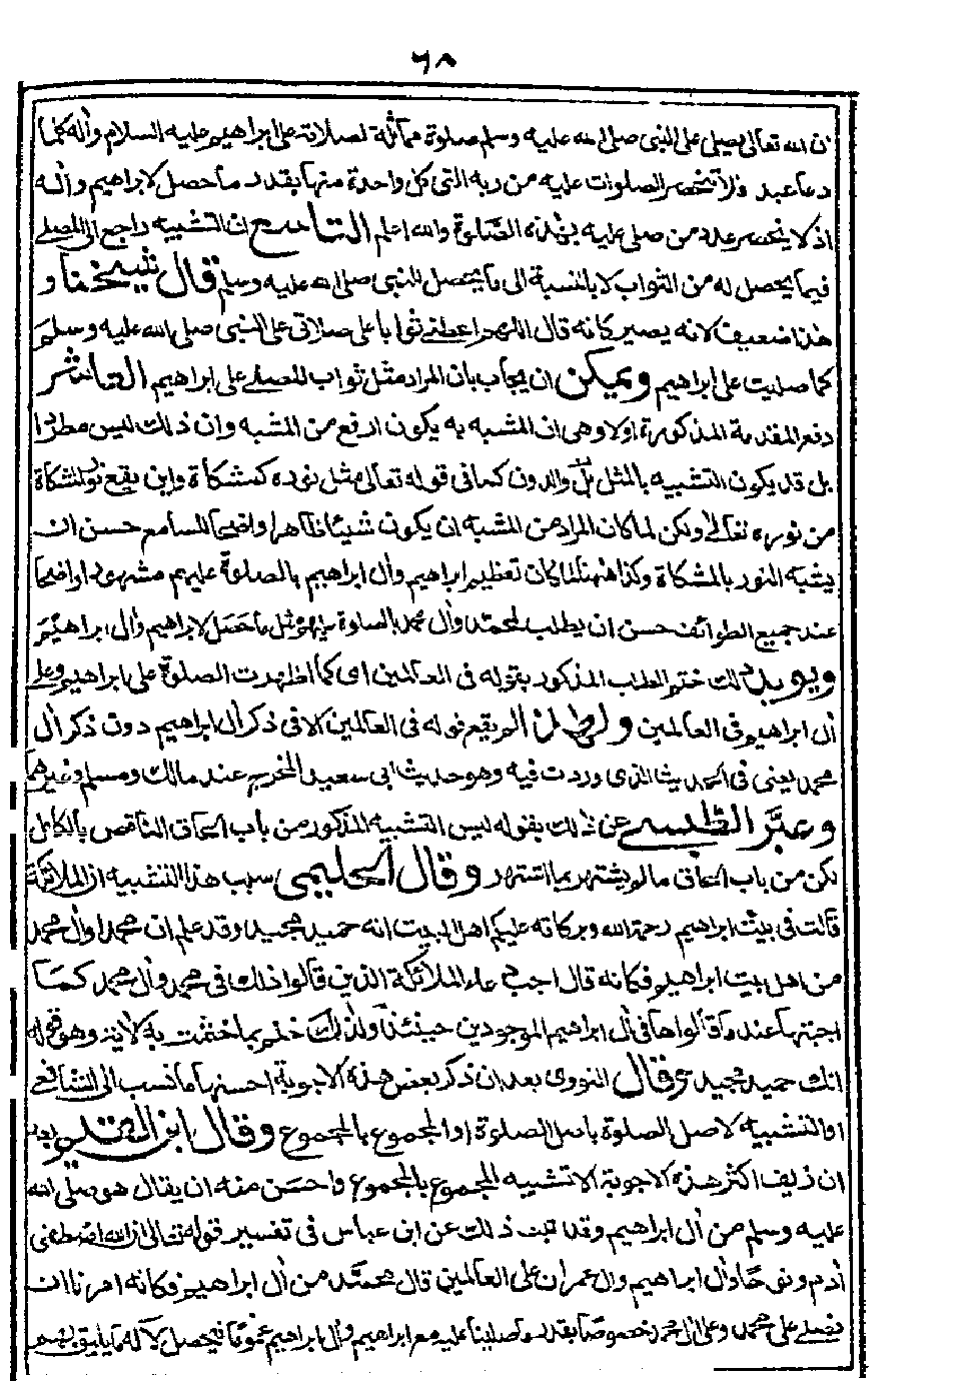 ٦٨
ن الله تعالى يصلى على النبى صلى الله عليه وسلم صلوة مماثلة لصلاته على ابراهيم عليه السلام وأله كلما
دعا عبد فلا تنحصر الصلوات عليه من ربه التى كل واحدة منها بقدر ما حصل لابراهيم وأله
اذ لا ينحصر عدد من صلى عليه بهذه الصلوة والله اعلم التاسع ان التشبيه راجع الى المصلى
فيما يحصل له من الثواب لا بالنسبة الى ما يحصل للنبى صلى الله عليه وسلم قال شيخنا و
هذا ضعيف لانه يصير كانه قال اللهم اعطنى ثوابا على صلاتى على النبى صلى الله عليه وسلم
كما صليت على ابراهيم ويمكن ان يجاب بان المراد مثل ثواب المصلى على ابراهيم العاشر
دفع المقدمة المذكورة اولا وهى ان المشبه به يكون ارفع من المشبه وان ذلك ليس مطردا
بل قد يكون التشبيه بالمثل بل والدون كما فى قوله تعالى مثل نوره كمشكاة واين يقع نور المشكاة
من نوره تعالى ولكن لما كان المراد من المشبه ان يكون شيئا ظاهرا واضحا للسامع حسن ان
يشبه النور بالمشكاة وكذا هنا لما كان تعظيم ابراهيم وأل ابراهيم بالصلوة عليهم مشهورا واضحا
عند جميع الطوائف حسن ان يطلب لمحمد وأل محمد بالصلوة عليهم مثل ما حصل لابراهيم وأل ابراهيم
ويؤيد ذلك ختم الطلب المذكور بقوله فى العالمين اى كما اظهرت الصلوة على ابراهيم وعلى
أل ابراهيم فى العالمين ولهذا لم يقع قوله فى العالمين الا فى ذكر أل ابراهيم دون ذكر أل
محمد يعنى فى الحديث الذى وردت فيه وهو حديث ابى سعيد المخرج عند مالك ومسلم وغيرهما
وعبر الطيبى عن ذلك بقوله ليس التشبيه المذكور من باب الحاق الناقص بالكامل
لكن من باب الحاق ما لم يشتهر بما اشتهر وقال الحليمى سبب هذا التشبيه ان الملائكة
قالت فى بيت ابراهيم رحمة الله وبركاته عليكم اهل البيت انه حميد مجيد وقد علم ان محمدا وأل محمد
من اهل بيت ابراهيم فكانه قال اجب دعاء الملائكة الذين قالوا ذلك فى محمد وأل محمد كما
اجبتها عند ما قالوها فى أل ابراهيم الموجودين حينئذ ولذلك ختم بما ختمت به الاية وهو قوله
انك حميد مجيد وقال النووى بعد ان ذكر بعض هذه الاجوبة احسنها ما نسب الى الشافعى
او التشبيه لاصل الصلوة باصل الصلوة او المجموع بالمجموع وقال ابن القيم بعد
ان زيف اكثر هذه الاجوبة الا تشبيه المجموع بالمجموع واحسن منه ان يقال هو صلى الله
عليه وسلم من أل ابراهيم وقد ثبت ذلك عن ابن عباس فى تفسير قوله تعالى ان الله اصطفى
أدم ونوحا وأل ابراهيم وال عمران على العالمين قال محمد من أل ابراهيم فكانه امرنا ان
نصلى على محمد وعلى أل محمد خصوصا بقدر ما صلينا عليه مع ابراهيم وأل ابراهيم عموما فيحصل لأله ما يليق بهم